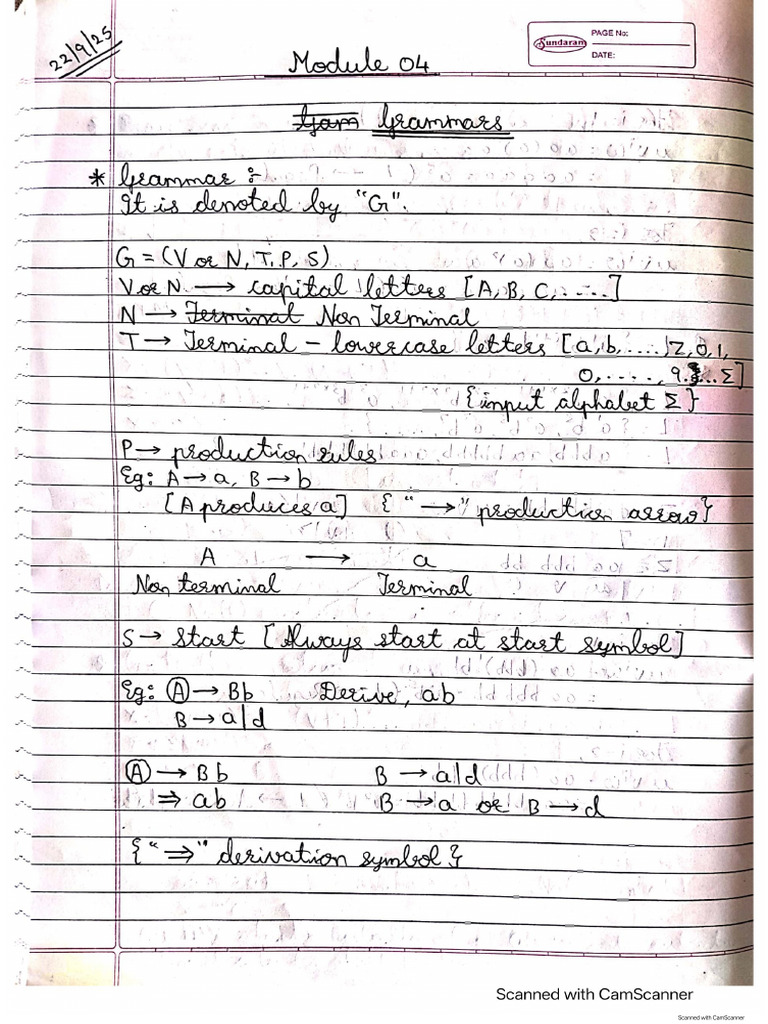 22/9/25
Sundaram
PAGE No:
DATE:
Module 04
Grammars
* Grammar :-
It is denoted by "G".
G = (V or N, T, P, S)
V or N → capital letters [A, B, C, .....]
N → Terminal Non Terminal
T → Terminal - lowercase letters [a, b, .... , z, 0, 1,
0, ....., 9 ... Σ]
{input alphabet Σ}
P → production rules
Eg: A → a, B → b
[A produces a] { "→" production arrow}
A → a
Non terminal Terminal
S → Start [Always start at start symbol]
Eg: A → Bb Derive, ab
B → a|d
A → Bb B → a|d
⇒ ab B → a or B → d
{ "⇒" derivation symbol }
Scanned with CamScanner
Scanned with CamScanner